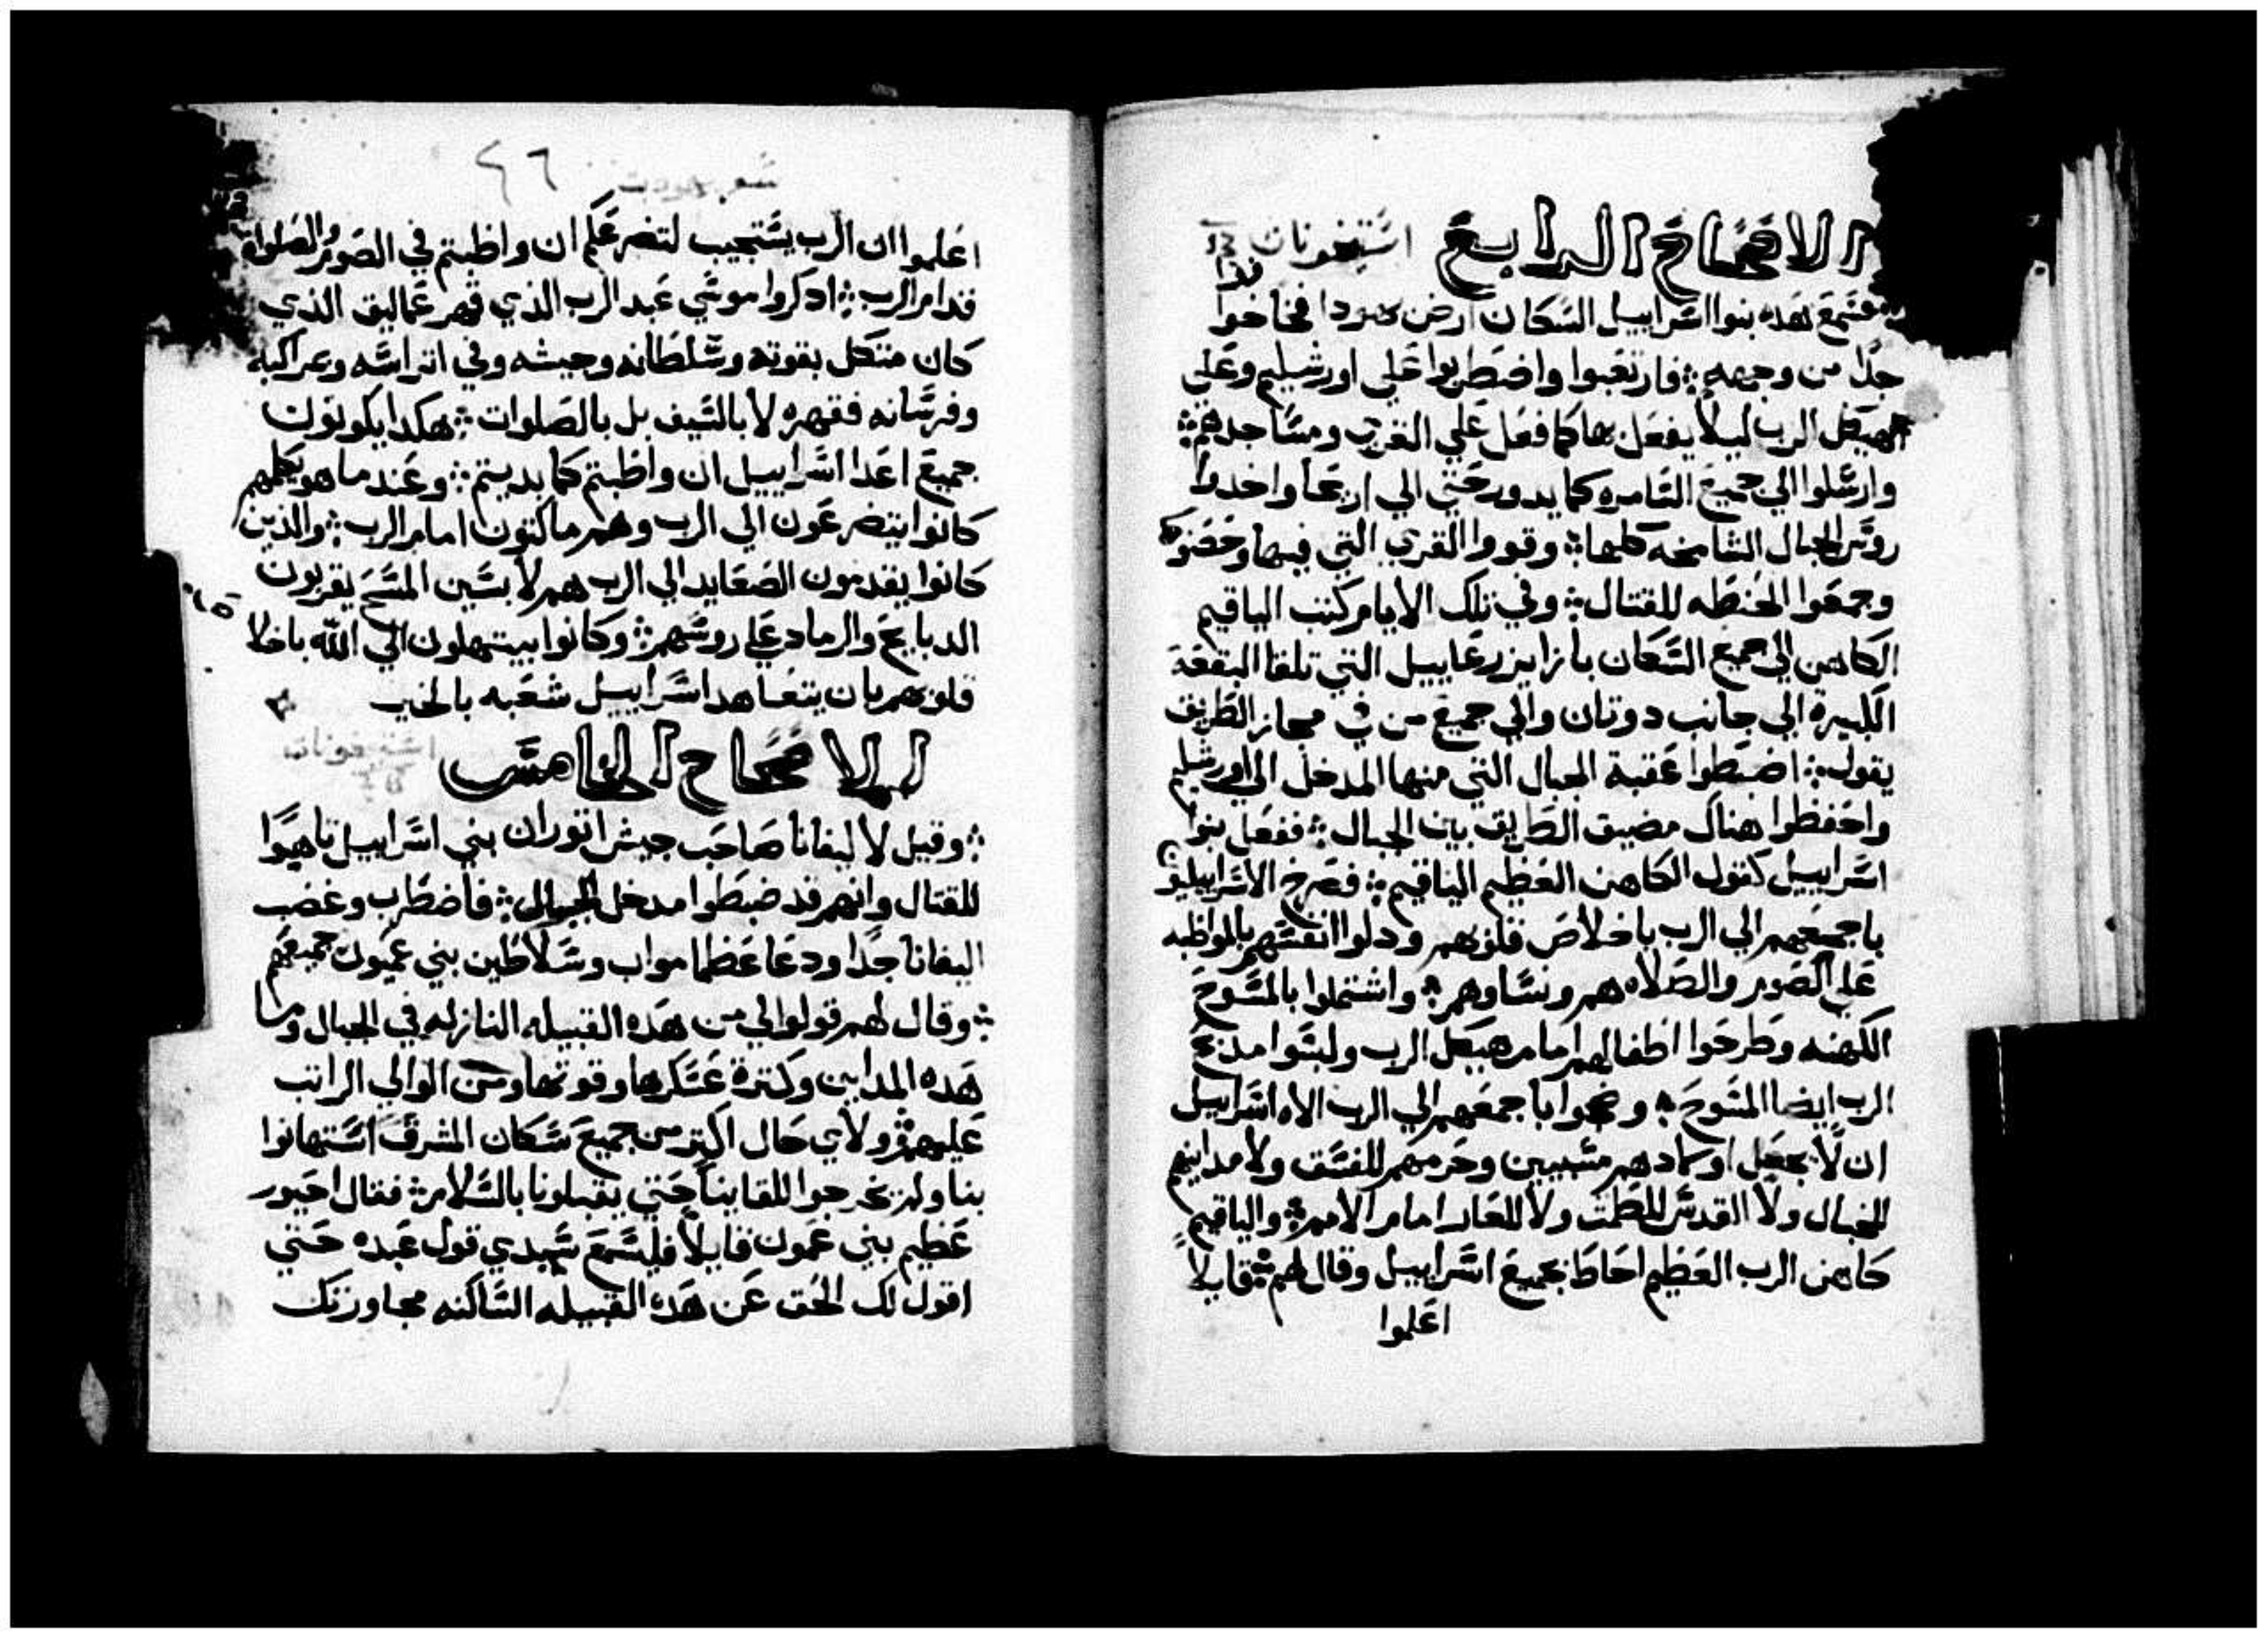 الافتتاح الرابع
استيخونات 13
فسمع هده بنوا اسراييل السكان ارض يهودا فخافوا
جدا من وجهه فارتعبوا واضطربوا علي اورشليم وعلي
هيكل الرب ليلا يفعل بها كما فعل علي القري ومساجدهم
وارسلوا الي جميع السامره كما يدور حتي الي اريحا واخدوا
روس الجبال الشامخه كلها وقووا القري التي فيها وحصنوها
وجمعوا الحنطه للقتال وفي تلك الايام كتب الياقيم
الكاهن الي جميع السكان بازا يزرعاييل التي تلقا البقعة
الكبيرة الي جانب دوتان والي جميع من في مجاز الطريق
يقول اضبطوا عقبة الجبال التي منها المدخل الي اورشليم
واحفظوا هناك مضيق الطريق بين الجبال ففعل بنوا
اسراييل كقول الكاهن العظيم الياقيم فصرخ الاسراييليون
باجمعهم الي الرب باخلاص قلوبهم ودلوا انفسهم بالمواظبه
علي الصوم والصلاه هم ونساوهم واشتملوا بالمسوح
الكهنه وطرحوا اطفالهم امام هيكل الرب ولبسوا مدبح
الرب ايضا المسوح وضجوا باجمعهم الي الرب الاه اسراييل
ان لا يجعل اولادهم مسبيين وحرمهم للفسق ولا مداينهم
للخبال ولا القدس للطمت ولا للعار امام الامم والياقيم
كاهن الرب العظيم احاط بجميع اسراييل وقال لهم قايلا
اعلموا
٤٦
اعلموا ان الرب يستجيب لتضرعكم ان واظبتم في الصوم والصلواه
قدام الرب ادكروا موسي عبد الرب الذي قهر عماليق الذي
كان متكل بقوته وسلطانه وجيشه وفي اتراسه ومراكبه
وفرسانه فقهره لا بالسيف بل بالصلوات هكدا يكونون
جميع اعدا اسراييل ان واظبتم كما بديتم وعند ما هو يكلمهم
كانوا يتضرعون الي الرب وهم ماكتون امام الرب والذين
كانوا يقدمون الصعايد الي الرب هم لابسين المسح يقربون
الدبايح والرماد علي روسهم وكانوا يبتهلون الي الله باخلا
قلوبهم بان يتعاهد اسراييل شعبه بالخير
الافتتاح الخامس
وقيل لاليفانا صاحب جيش اتوران بني اسراييل تاهبوا
للقتال وانهم قد ضبطوا مدخل الجبال فاضطرب وغضب
اليفانا جدا ودعا عظما مواب وسلاطين بني عميون جميعهم
وقال لهم قولوا لي من هده القبيله النازله في الجبال وما
هده المداين وكترة عسكرها وقوتها ومن الوالي الراتب
عليهم ولاي حال اكتر من جميع سكان المشرق استهانوا
بنا ولم يخرجوا للقاينا حتي يقبلونا بالسلام فقال احيور
عظيم بني عمون قايلا فليسمع سيدي قول عبده حتي
اقول لك الحق عن هده القبيله الساكنه مجاورتك